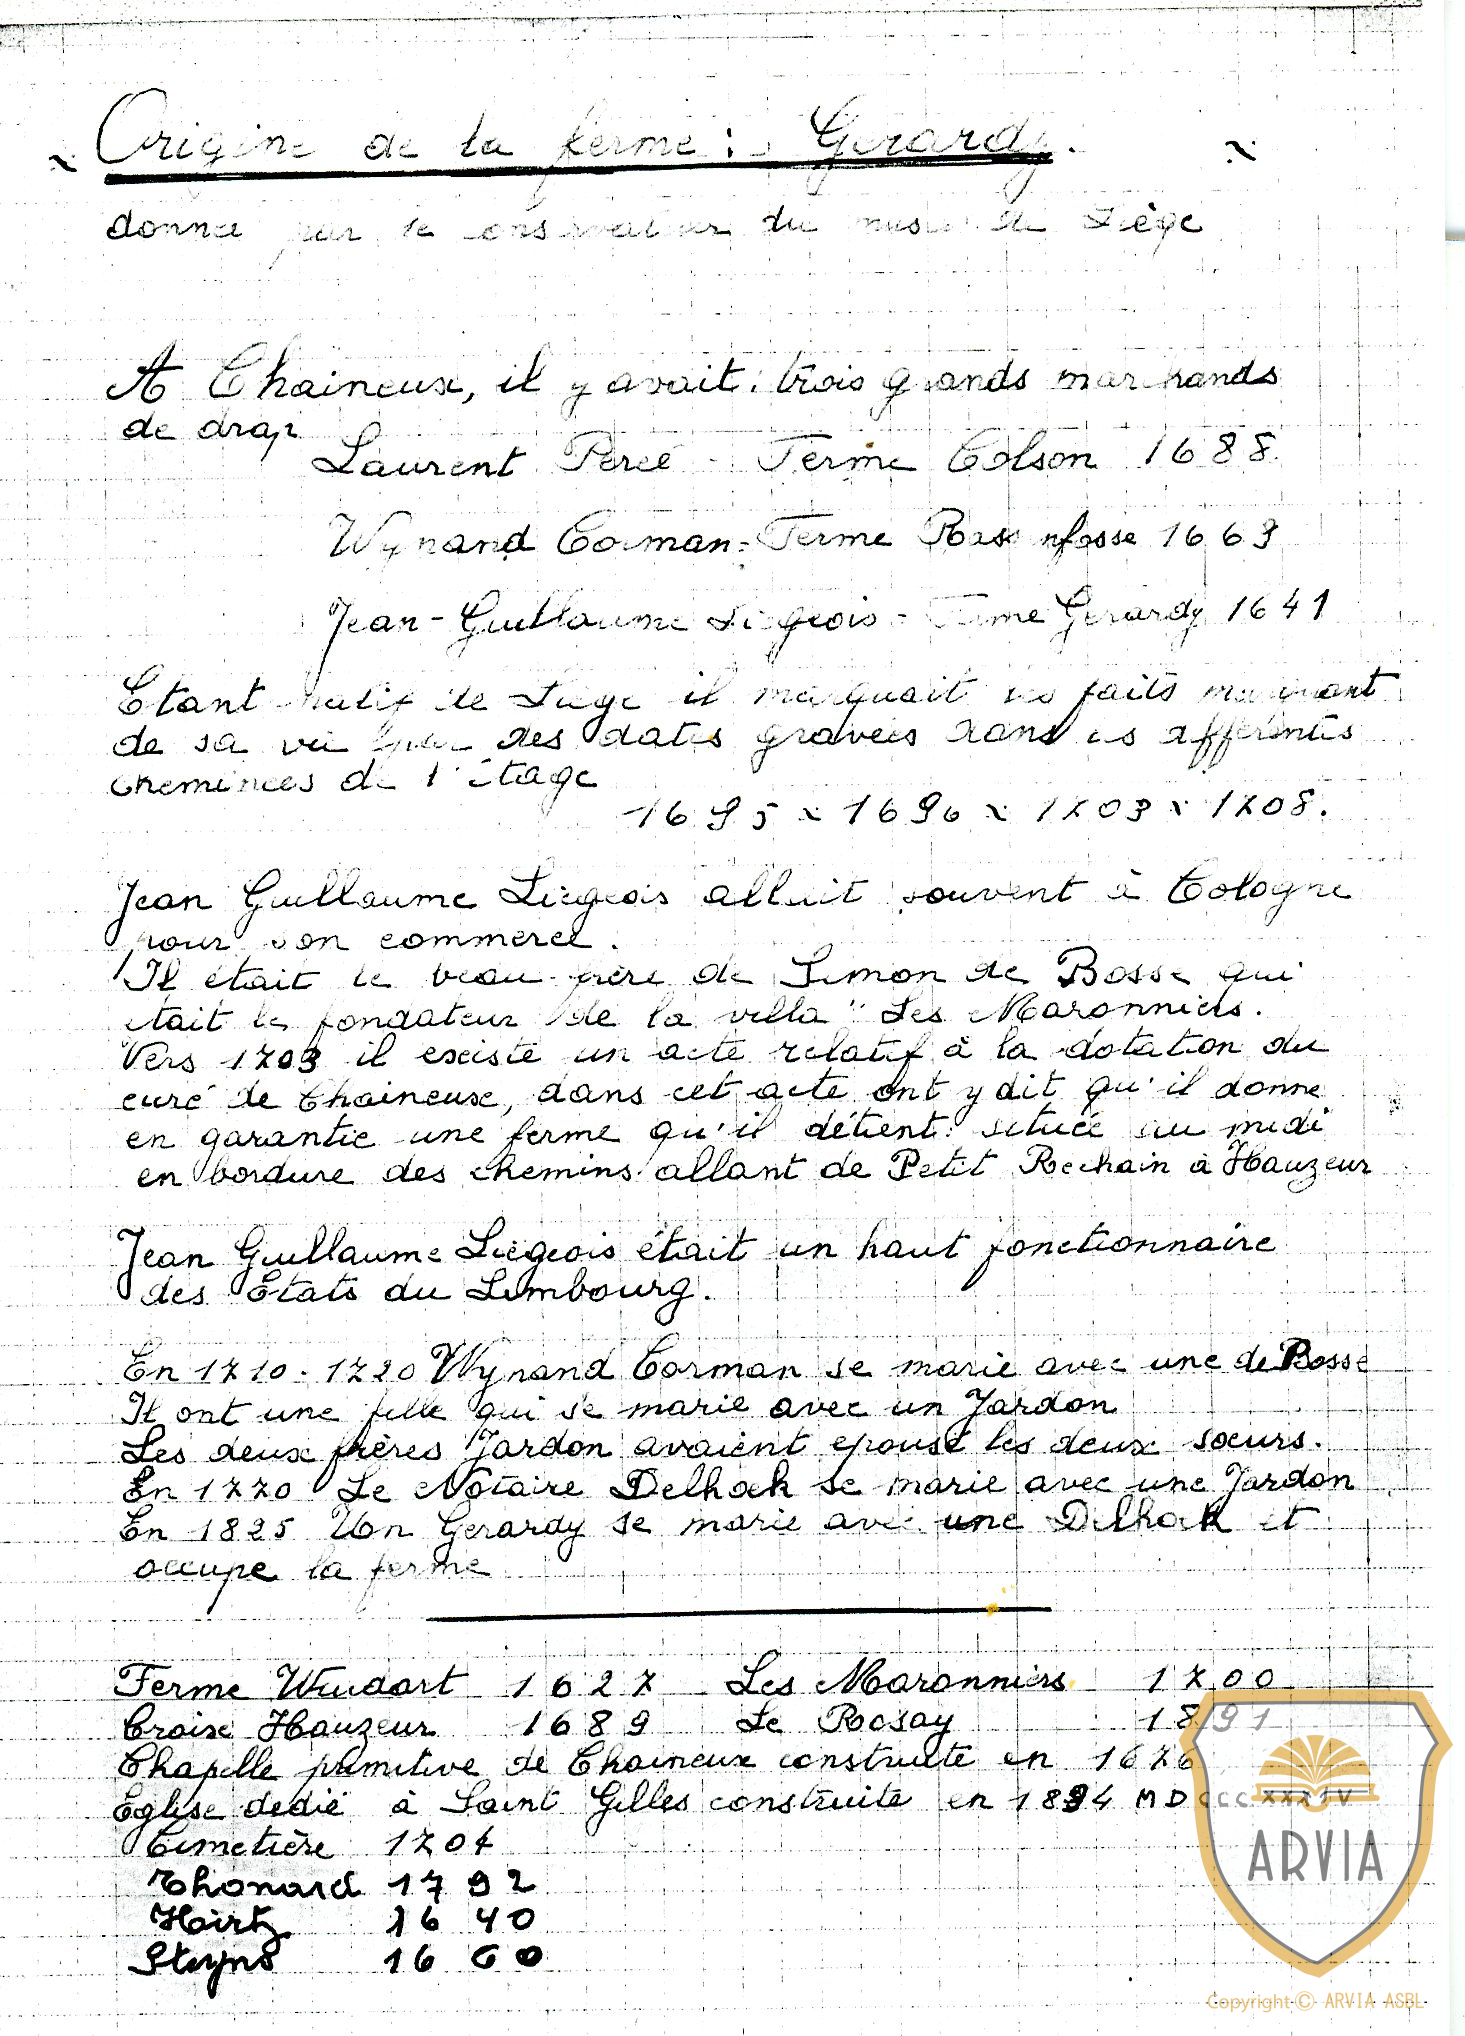 Origine de la ferme : Gerardy.
donnée par le conservateur du musée de Liège
A Chaineux, il y avait : trois grands marchands
de drap
Laurent Peree - Ferme Colson 1688
Wynand Corman - Ferme Rassenfosse 1669
Jean-Guillaume Liégeois - Ferme Gerardy 1641
Etant natif de Liège il marquait les faits marquant
de sa vie par des dates gravées dans les afférentes
cheminées de l'étage
1695 x 1696 x 1703 x 1708.
Jean Guillaume Liégeois allait souvent à Cologne
pour son commerce.
Il était le beau-frère de Simon de Bosse qui
était le fondateur de la villa " Les Maronniers.
Vers 1703 il existe un acte relatif à la dotation du
curé de Chaineux, dans cet acte ont y dit qu'il donne
en garantie une ferme qu'il détient : située au midi
en bordure des chemins allant de Petit Rechain à Hauzeur
Jean Guillaume Liégeois était un haut fonctionnaire
des Etats du Limbourg.
En 1710 - 1720 Wynand Corman se marie avec une de Bosse
Il ont une fille qui se marie avec un Jardon
Les deux frères Jardon avaient epousé les deux soeurs.
En 1770 Le Notaire Delhoek se marie avec une Jardon
En 1825 Un Gerardy se marie avec une Delhoek et
occupe la ferme
Ferme Windart 1627 Les Maronniers 1700
Croix Hauzeur 1689 Le Rosay 1891
Chapelle primitive de Chaineux construite en 1676
Eglise dedié à Saint Gilles construite en 1834 MDCCCXXXIV
Cimetière 1704
Thonard 1792
Hirtz 1640
Steyns 1660
ARVIA
Copyright © ARVIA ASBL